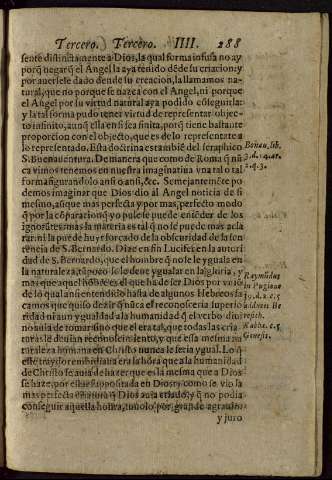 Tercero. Tercero. IIII. 288
sente distinctamente a Dios, la qual forma infusa no ay
porq̃ negar q̃ el Angel la aya tenido dẽde su criacion: y
por auersele dado dende su creacion, la llamamos na-
tural, que no porque se nazca con el Angel, ni porque
el Angel por su virtud natural aya podido cõseguirla:
y la tal forma pudo tener virtud de representar objec-
to infinito, aunq̃ ella en si sea finita, porq̃ tiene bastante
proporcion con el objecto, que es de lo representante a
lo representado. Esta doctrina es tambiẽ del seraphico
S. Buenauentura. De manera que como de Roma q̃ nũ
ca vimos tenemos en nuestra imaginatiua vna tal o tal
forma figurandola ansi o ansi, &c. Semejantemẽte po-
demos imaginar que Dios dio al Angel noticia de si
mesmo, aunque mas perfecta y por mas perfecto modo
q̃ por la cõparacion q̃ yo puse se puede entẽder de los
ignorãtes: mas la materia es tal q̃ no se puede mas acla
rar: ni la puede huyr forçado de la obscuridad de la sen
tencia de S. Bernardo. Dize en fin Lucifer en la autori
dad de S. Bernardo, que el hombre q̃ no le yguala en
la naturaleza, tãpoco se le deue ygualar en la gloria, y
mas que aquel hõbre es el que ha de ser Dios por vniõ
de lo qual ansi entendido hasta de algunos Hebreos sa
camos que quiso dezir q̃ nũca el reconosceria superio
ridad ni aun ygualdad a la humanidad q̃ el verbo diui
no auia de tomar: sino que el era tal, que todas las cria
turas le deuian reconoscimiento, y que essa mesma na
turaleza humana en Christo nunca le seria ygual. Lo q̃
de Christo se auia de hazer que es la mesma que a Dios
se haze, por estar suppositada en Dios: y como se vio la
mas perfecta creatura q̃ Dios auia criado, y q̃ no podia
conseguir aquella honra, tuuolo por grande agrauio
y juro
Bonau. lib.
3. d. 14. ar.
2. q. 3.
Raymũdus
in Pugione
Genesis.